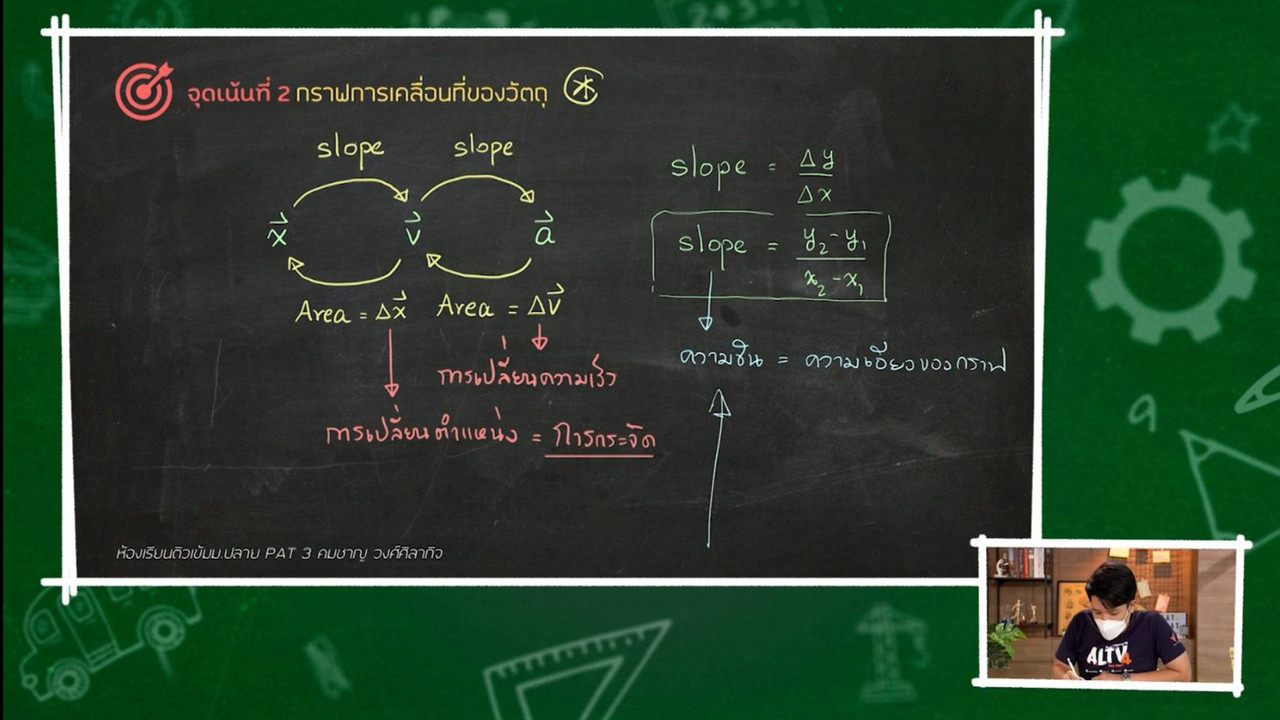 จุดเน้นที่ 2 กราฟการเคลื่อนที่ของวัตถุ
slope slope
x⃗ v⃗ a⃗
Area = Δx⃗ Area = Δv⃗
การเปลี่ยนความเร็ว
การเปลี่ยนตำแหน่ง = การกระจัด
slope = Δy / Δx
slope = y₂ - y₁ / x₂ - x₁
ความชัน = ความเอียงของกราฟ
ห้องเรียนติวเข้มม.ปลาย PAT 3 คมชาญ วงศ์ศิลากิจ
ALTV4